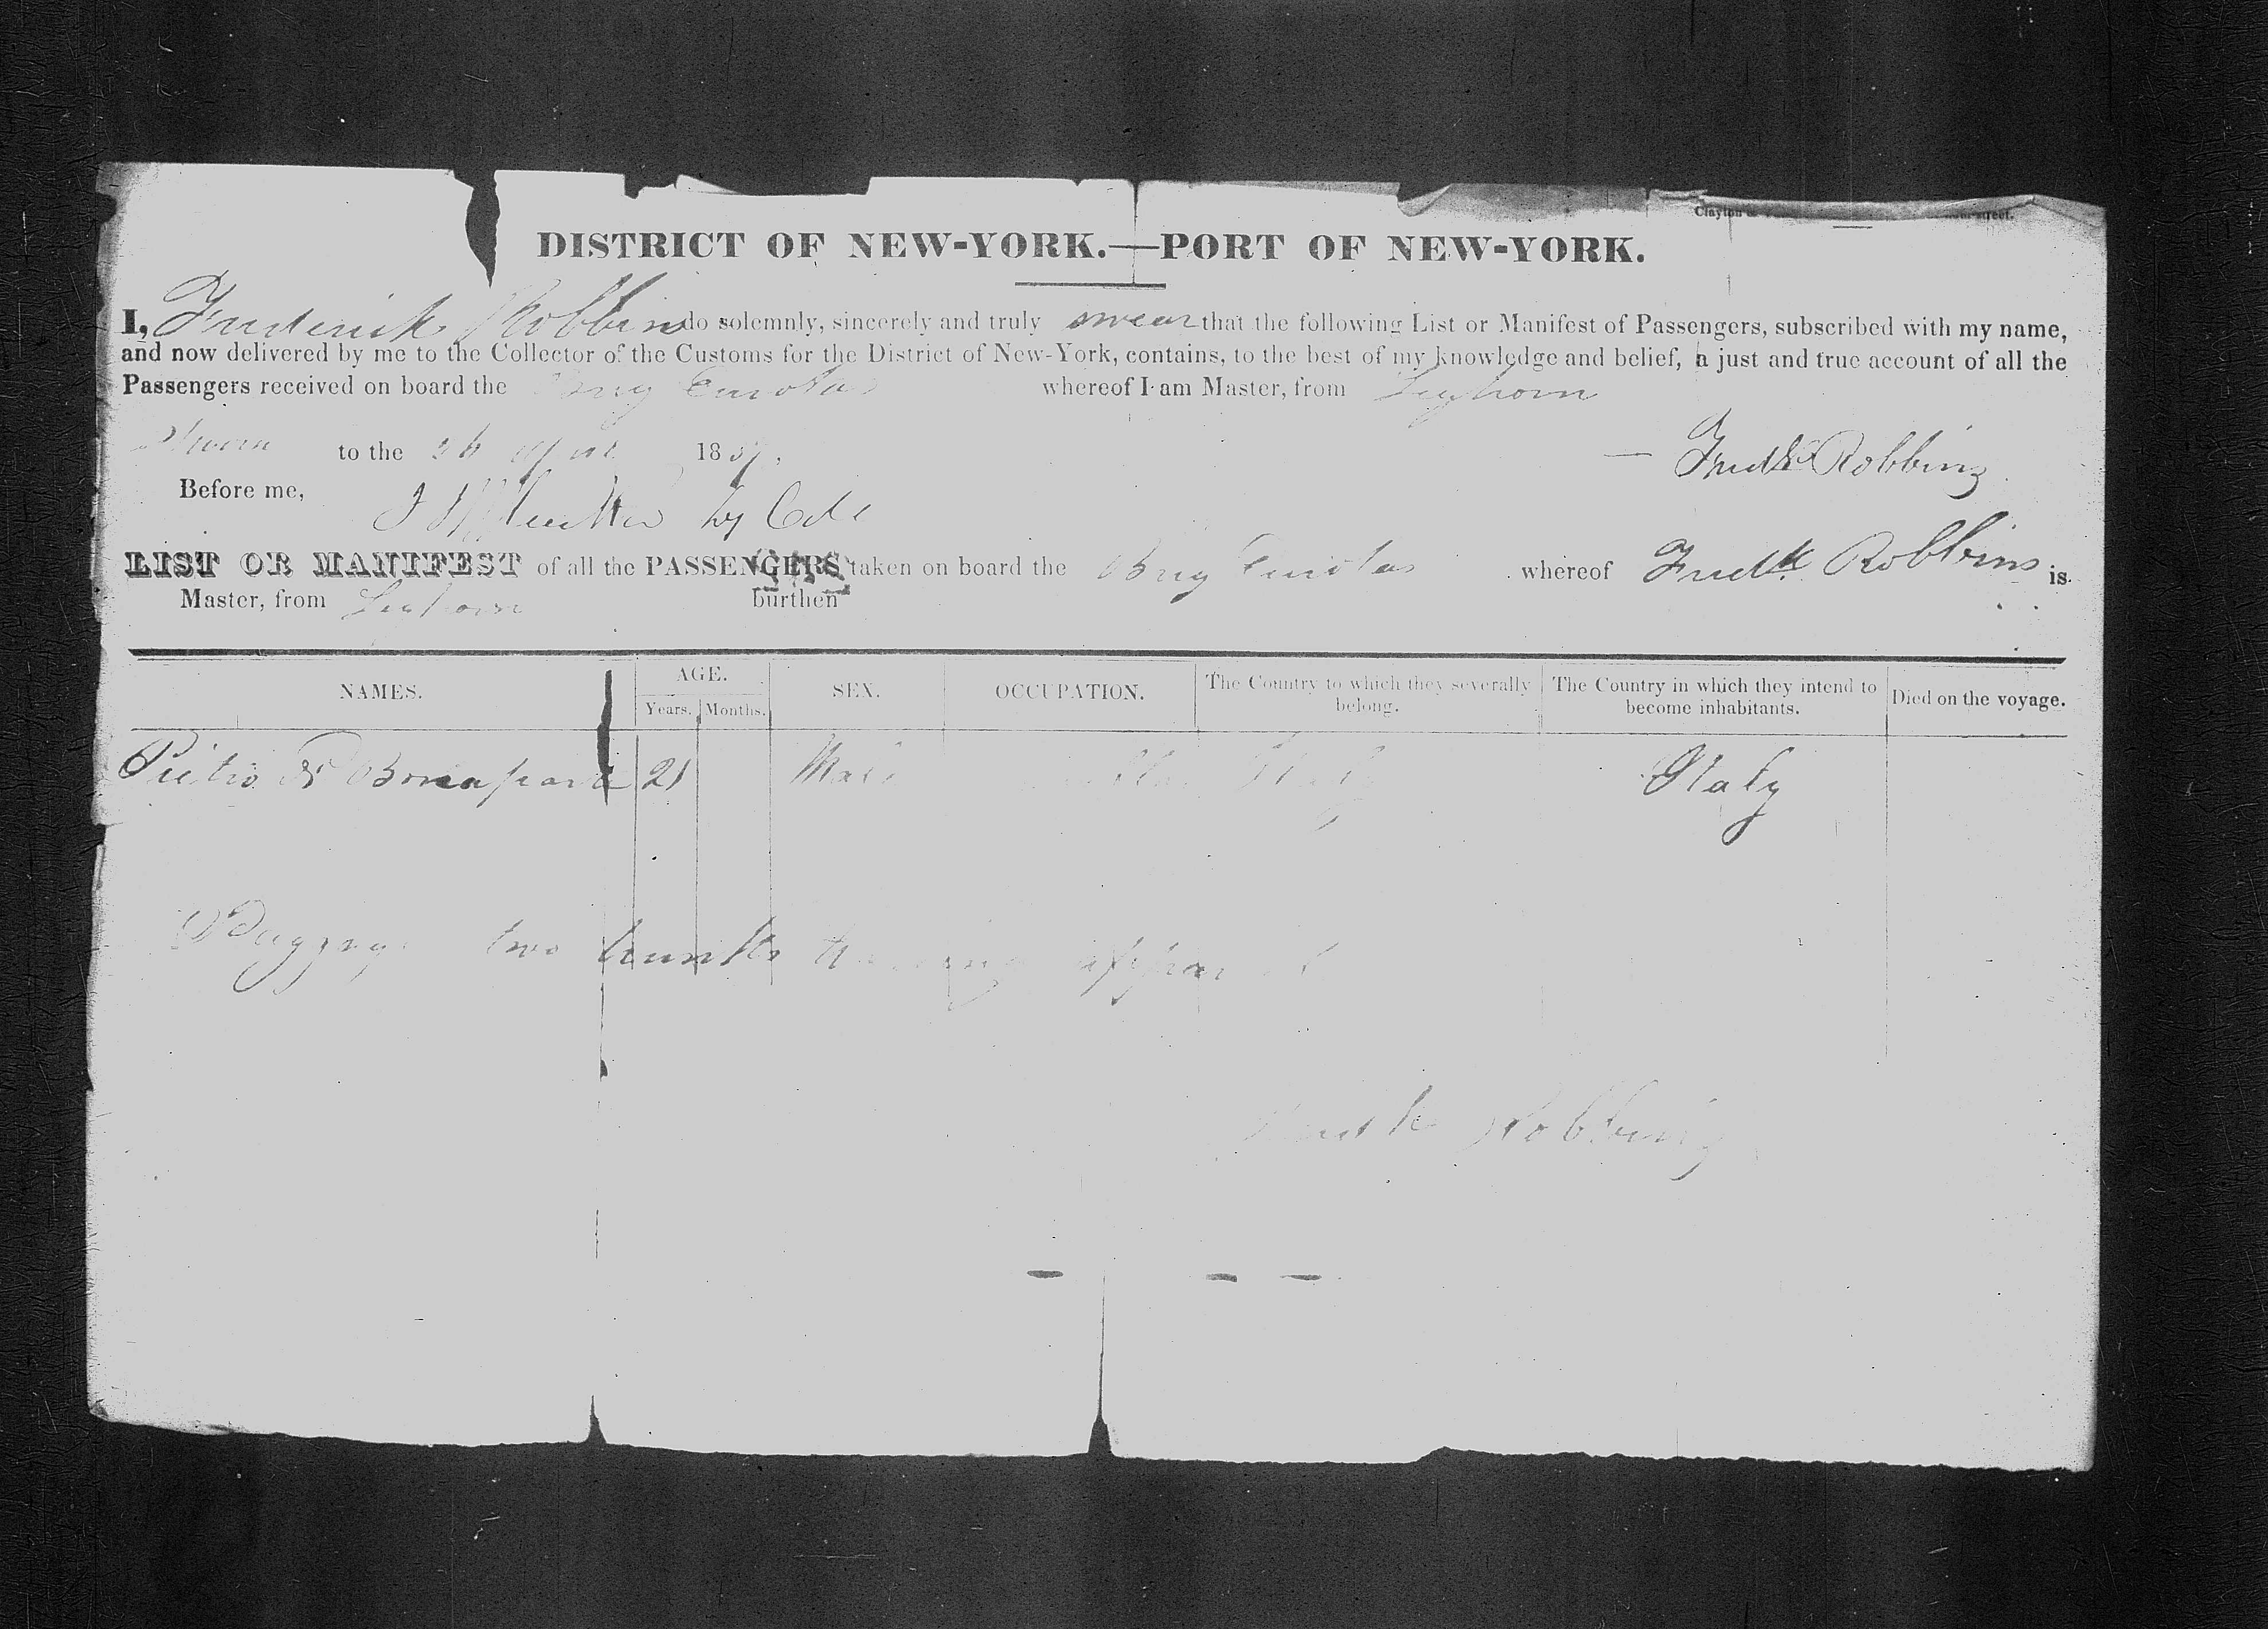 Clayton street.
DISTRICT OF NEW-YORK.—PORT OF NEW-YORK.
I, Frederick Robbins do solemnly, sincerely and truly swear that the following List or Manifest of Passengers, subscribed with my name,
and now delivered by me to the Collector of the Customs for the District of New-York, contains, to the best of my knowledge and belief, a just and true account of all the
Passengers received on board the Brig Eurotas whereof I am Master, from Leghorn
Sworn to the 26 April 1837.
Fredk Robbins
Before me,
LIST OR MANIFEST of all the PASSENGERS taken on board the Brig Eurotas whereof Fredk Robbins is
Master, from Leghorn burthen
NAMES. AGE. SEX. OCCUPATION. The Country to which they severally belong. The Country in which they intend to become inhabitants. Died on the voyage.
Years. Months.
Pietro N Bonaparte 21 Male Italy Italy
Baggage two trunks wearing apparel
Fredk Robbins